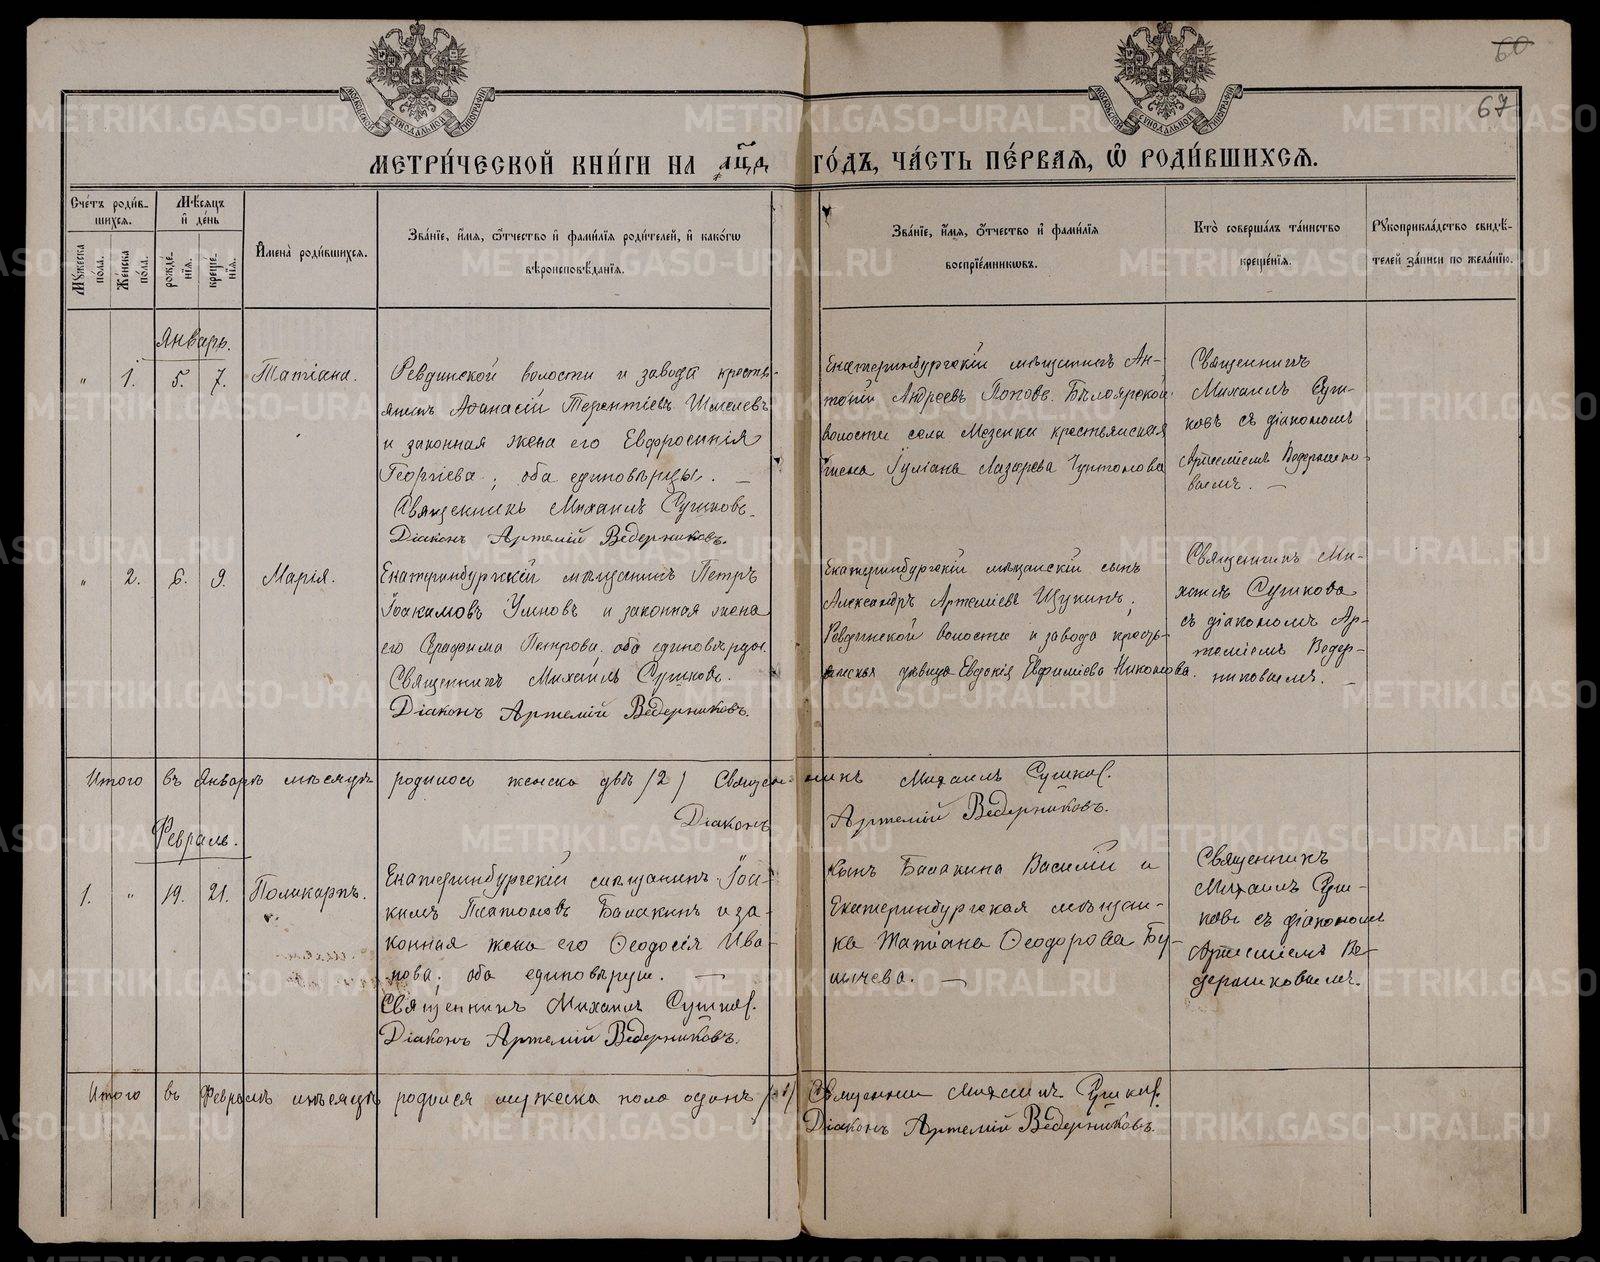 60
67
МЕТРИ́ЧЕСКОЙ КНИ́ГИ НА ҂АЦД ГО́ДЪ, ЧА́СТЬ ПЕ́РВАЯ, Ѽ РОДИ́ВШИХСЯ.
Сче́тъ роди́вшихся.
Мѣ́сяцъ и҆ де́нь
Мꙋ́жеска по́ла.
Же́нска по́ла.
рожде́нїя.
креще́нїя.
И҆мена̀ роди́вшихся.
Зва́нїе, и҆́мя, ѻ҆́тчество и҆ фами́лїя роди́телей, и҆ како́гѡ
вѣроисповѣ́данїя.
Зва́нїе, и҆́мя, ѻ҆́тчество и҆ фами́лїя
воспрїе́мникѡвъ.
Кто̀ соверша́лъ та́инство
креще́нїя.
Рꙋкоприкла́дство свидѣ́-
телей за́писи по жела́нїю.
Январь.
" 1. 5. 7. Татіана.
Ревдинской волости и завода кресть-
янинъ Аѳанасій Терентіевъ Шмелевъ
и законная жена его Евфросинія
Георгіева; оба единовѣрцы. —
Священникъ Михаилъ Сушковъ.
Діаконъ Артемій Ведерниковъ.
Екатеринбургскій мѣщанинъ Ан-
тоній Андреевъ Поповъ. Бѣлоярской
волости села Мезенки крестьянская
жена Іуліана Лазарева
Священникъ
Михаилъ Суш-
ковъ съ діакономъ
Артеміемъ Ведернико-
вымъ. —
" 2. 6. 9. Марія.
Екатеринбургскій мѣщанинъ Петръ
Іоакимовъ Умновъ и законная жена
его Серафима Петрова, оба единовѣрцы.
Священникъ Михаилъ Сушковъ.
Діаконъ Артемій Ведерниковъ.
Екатеринбургскій мѣщанскій сынъ
Александръ Артеміевъ Щукинъ;
Ревдинской волости и завода кресть-
янская дѣвица Евдокія Евфиміева Никонова.
Священникъ Ми-
хаилъ Сушковъ
съ діакономъ Ар-
теміемъ Ведер-
никовымъ. —
Итого въ Январѣ мѣсяцѣ родилось женска двѣ /2/ Священникъ Михаилъ Сушков.
Діаконъ Артемій Ведерниковъ.
Февраль.
1. " 19. 21. Поликарпъ.
Екатеринбургскій мѣщанинъ Іоа-
кимъ Платоновъ Балакинъ и за-
конная жена его Ѳеодосія Ива-
нова; оба единовѣрцы. —
Священникъ Михаилъ Сушков.
Діаконъ Артемій Ведерниковъ.
Балакина Василій и
Екатеринбургская мѣщан-
ка Татіана Ѳеодорова Бу-
шычева. —
Священникъ
Михаилъ Суш-
ковъ съ діакономъ
Артеміемъ Ве-
дерниковымъ.
Итого въ Февралѣ мѣсяцѣ родился мужеска пола одинъ /1/ Священник Михаилъ Сушков.
Діаконъ Артемій Ведерниковъ.
METRIKI.GASO-URAL.RU